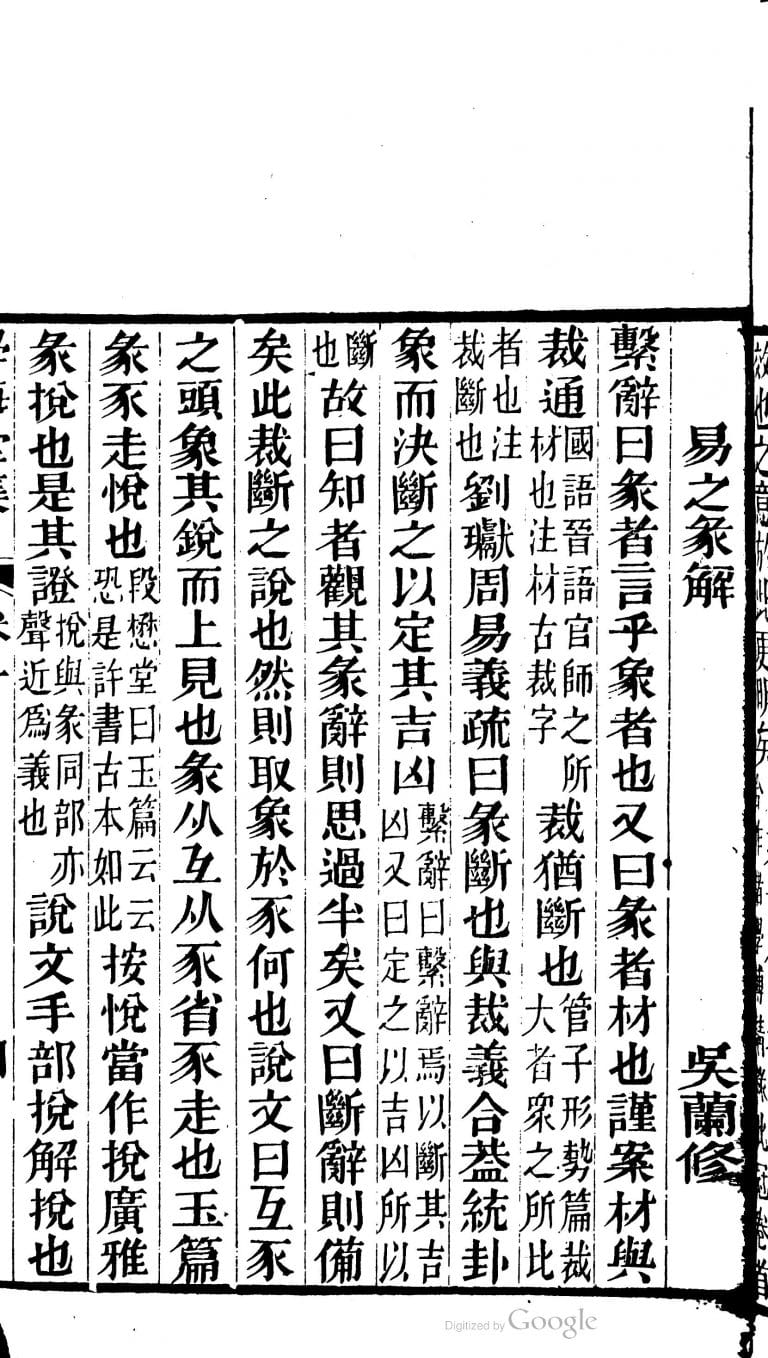 易之彖解　吳蘭修
繫辭曰彖者言乎象者也又曰彖者材也謹案材與
裁通國語晉語官師之所材也注材古裁字裁猶斷也管子形勢篇裁大者眾之所比
者也注裁斷也劉瓛周易義疏曰彖斷也與裁義合葢統卦
象而決斷之以定其吉凶繫辭曰繫辭焉以斷其吉凶又曰定之以吉凶所以
斷也故曰知者觀其彖辭則思過半矣又曰斷辭則備
矣此裁斷之說也然則取象於豕何也說文曰互豕
之頭象其銳而上見也彖从互从豕省豕走也玉篇
彖豕走悅也段懋堂曰玉篇云云恐是許書古本如此按悅當作挩廣雅
彖挩也是其證挩與彖同部亦聲近爲義也說文手部挩解挩也
Digitized by Google